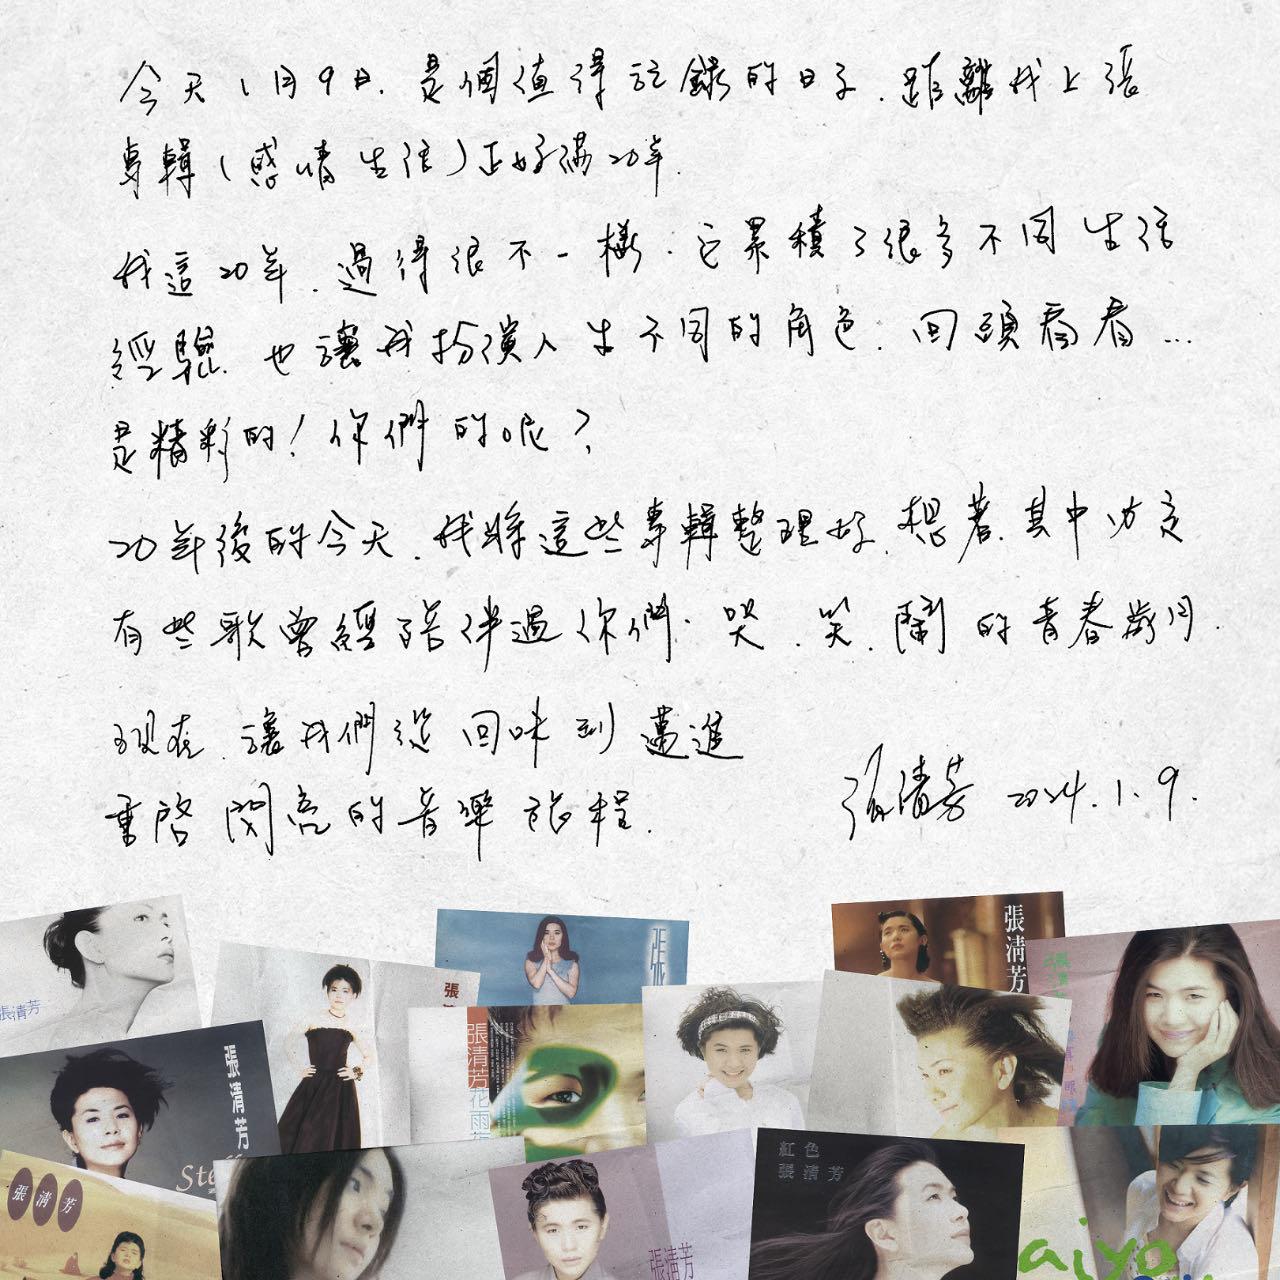 今天1月9日．是個值得記錄的日子．距離我上張
專輯（感情生活）正好滿20年．
我這20年．過得很不一樣．它累積了很多不同生活
經驗．也讓我扮演人生不同的角色．回頭看看…
是精彩的！你們的呢？
20年後的今天．我將這些專輯整理好．想著．其中必定
有些歌曾經陪伴過你們．哭．笑．鬧的青春歲月．
現在．讓我們從回味到邁進
重啓閃亮的音樂旅程．
張清芳 2024.1.9.
張清芳
張清芳
張
張清芳
張清芳
張清芳
花雨
張清芳
紅色
張清芳
張清芳
aiyo